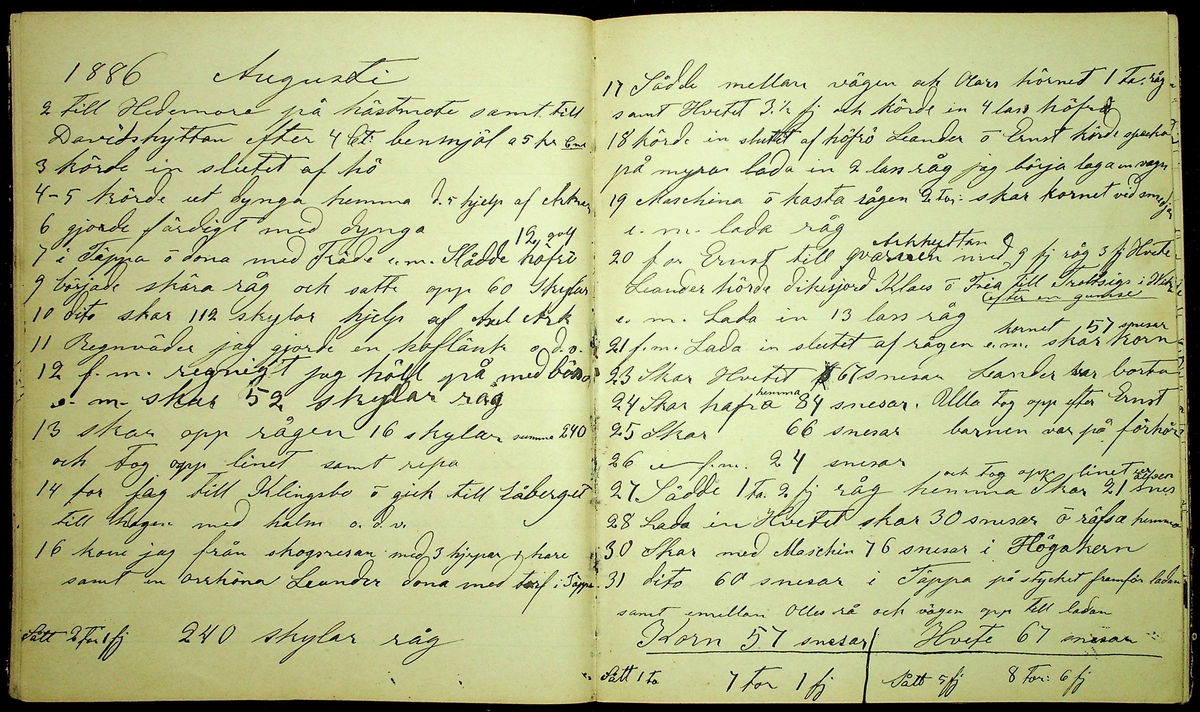 1886 Augusti
2 till Hedemora på hästmöte samt till
Davidshyttan efter 4 benmjöl a 5 kr
3 körde in slutet af hö
4-5 körde ut dynga hemma d. 5 hjelp af
6 gjorde färdigt med dynga
12 golf
7 i Täppa ö dona med Träde e.m. Slådde höfrö
9 började skära råg och satte opp 60 Skylar
10 dito skar 112 skylar hjelp af Axel Ark
11 Regnväder jag gjorde en o. d. v.
12 f. m. regnigt jag höll på med
e. m. skar 52 skylar råg
13 skar opp rågen 16 skylar summa 240
och tog opp linet samt repa
14 for jag till Klingsbo ö gick till Låberget
till hagen med halm o. d. v.
16 kom jag från skogsresan med 3 hjerpar 1 hare
samt en orrhöna Leander dona med torf i Täppa
Sått 2 tor 1 fj 240 skylar råg
17 Sådde mellan vägen och Olars hörnet 1 Ta. råg
samt Hvetet 3½ fj och körde in 4 lass höfrö
18 körde in slutet af höfrö Leander ö Ernst körde
på myran lada in 2 lass råg jag börja laga en vagn
19 Maschina ö kasta rågen 2 tor: skar kornet vid smedjan
e. m. lada råg
Arkhyttan
20 for Ernst till qvarnen med 9 fj råg 3 fj Hvete
Leander körde dikesjord Klaes ö till Trotsigs i
efter en
e. m. Lada in 13 lass råg
kornet 57 snesar
21 f.m. Lada in slutet af rågen e.m. skar korn
23 Skar Hvetet 67 snesar Leander var borta
hemma
24 Skar hafra 84 snesar. Ulla tog opp efter Ernst
25 Skar 66 snesar barnen var på förhör
26 f.m. 24 snesar
och tog opp linet
27 Sådde 1 ta. 2 fj råg hemma Skar 21 snes
28 Lada in Hvetet skar 30 snesar ö räfsa hemma
30 Skar med Maschin 76 snesar i Högåkern
31 dito 60 snesar i Täppa på stycket framför ladan
samt emellan Olles rå och vägen opp till ladan
Korn 57 snesar Hvete 67 snesar
Sått 1 ta 7 tor 1 fj Sått 5 fj 8 tor: 6 fj